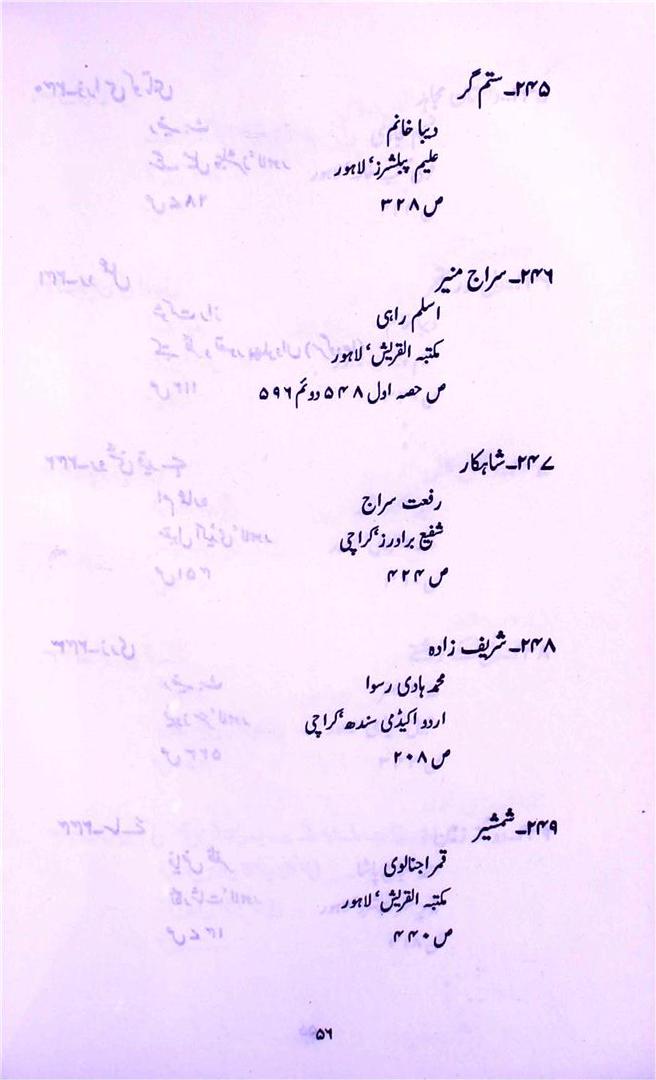 ۲۴۵۔ ستم گر
دیبا خانم
علیم پبلشرز، لاہور
ص ۳۲۸
۲۴۶۔ سراج منیر
اسلم راہی
مکتبہ القریش، لاہور
ص حصہ اول ۵۴۸ دوئم ۵۹۶
۲۴۷۔ شاہکار
رفعت سراج
شفیع برادرز، کراچی
ص ۴۲۴
۲۴۸۔ شریف زادہ
محمد ہادی رسوا
اردو اکیڈمی سندھ، کراچی
ص ۲۰۸
۲۴۹۔ شمشیر
قمر اجنالوی
مکتبہ القریش، لاہور
ص ۴۴۰
۵۶